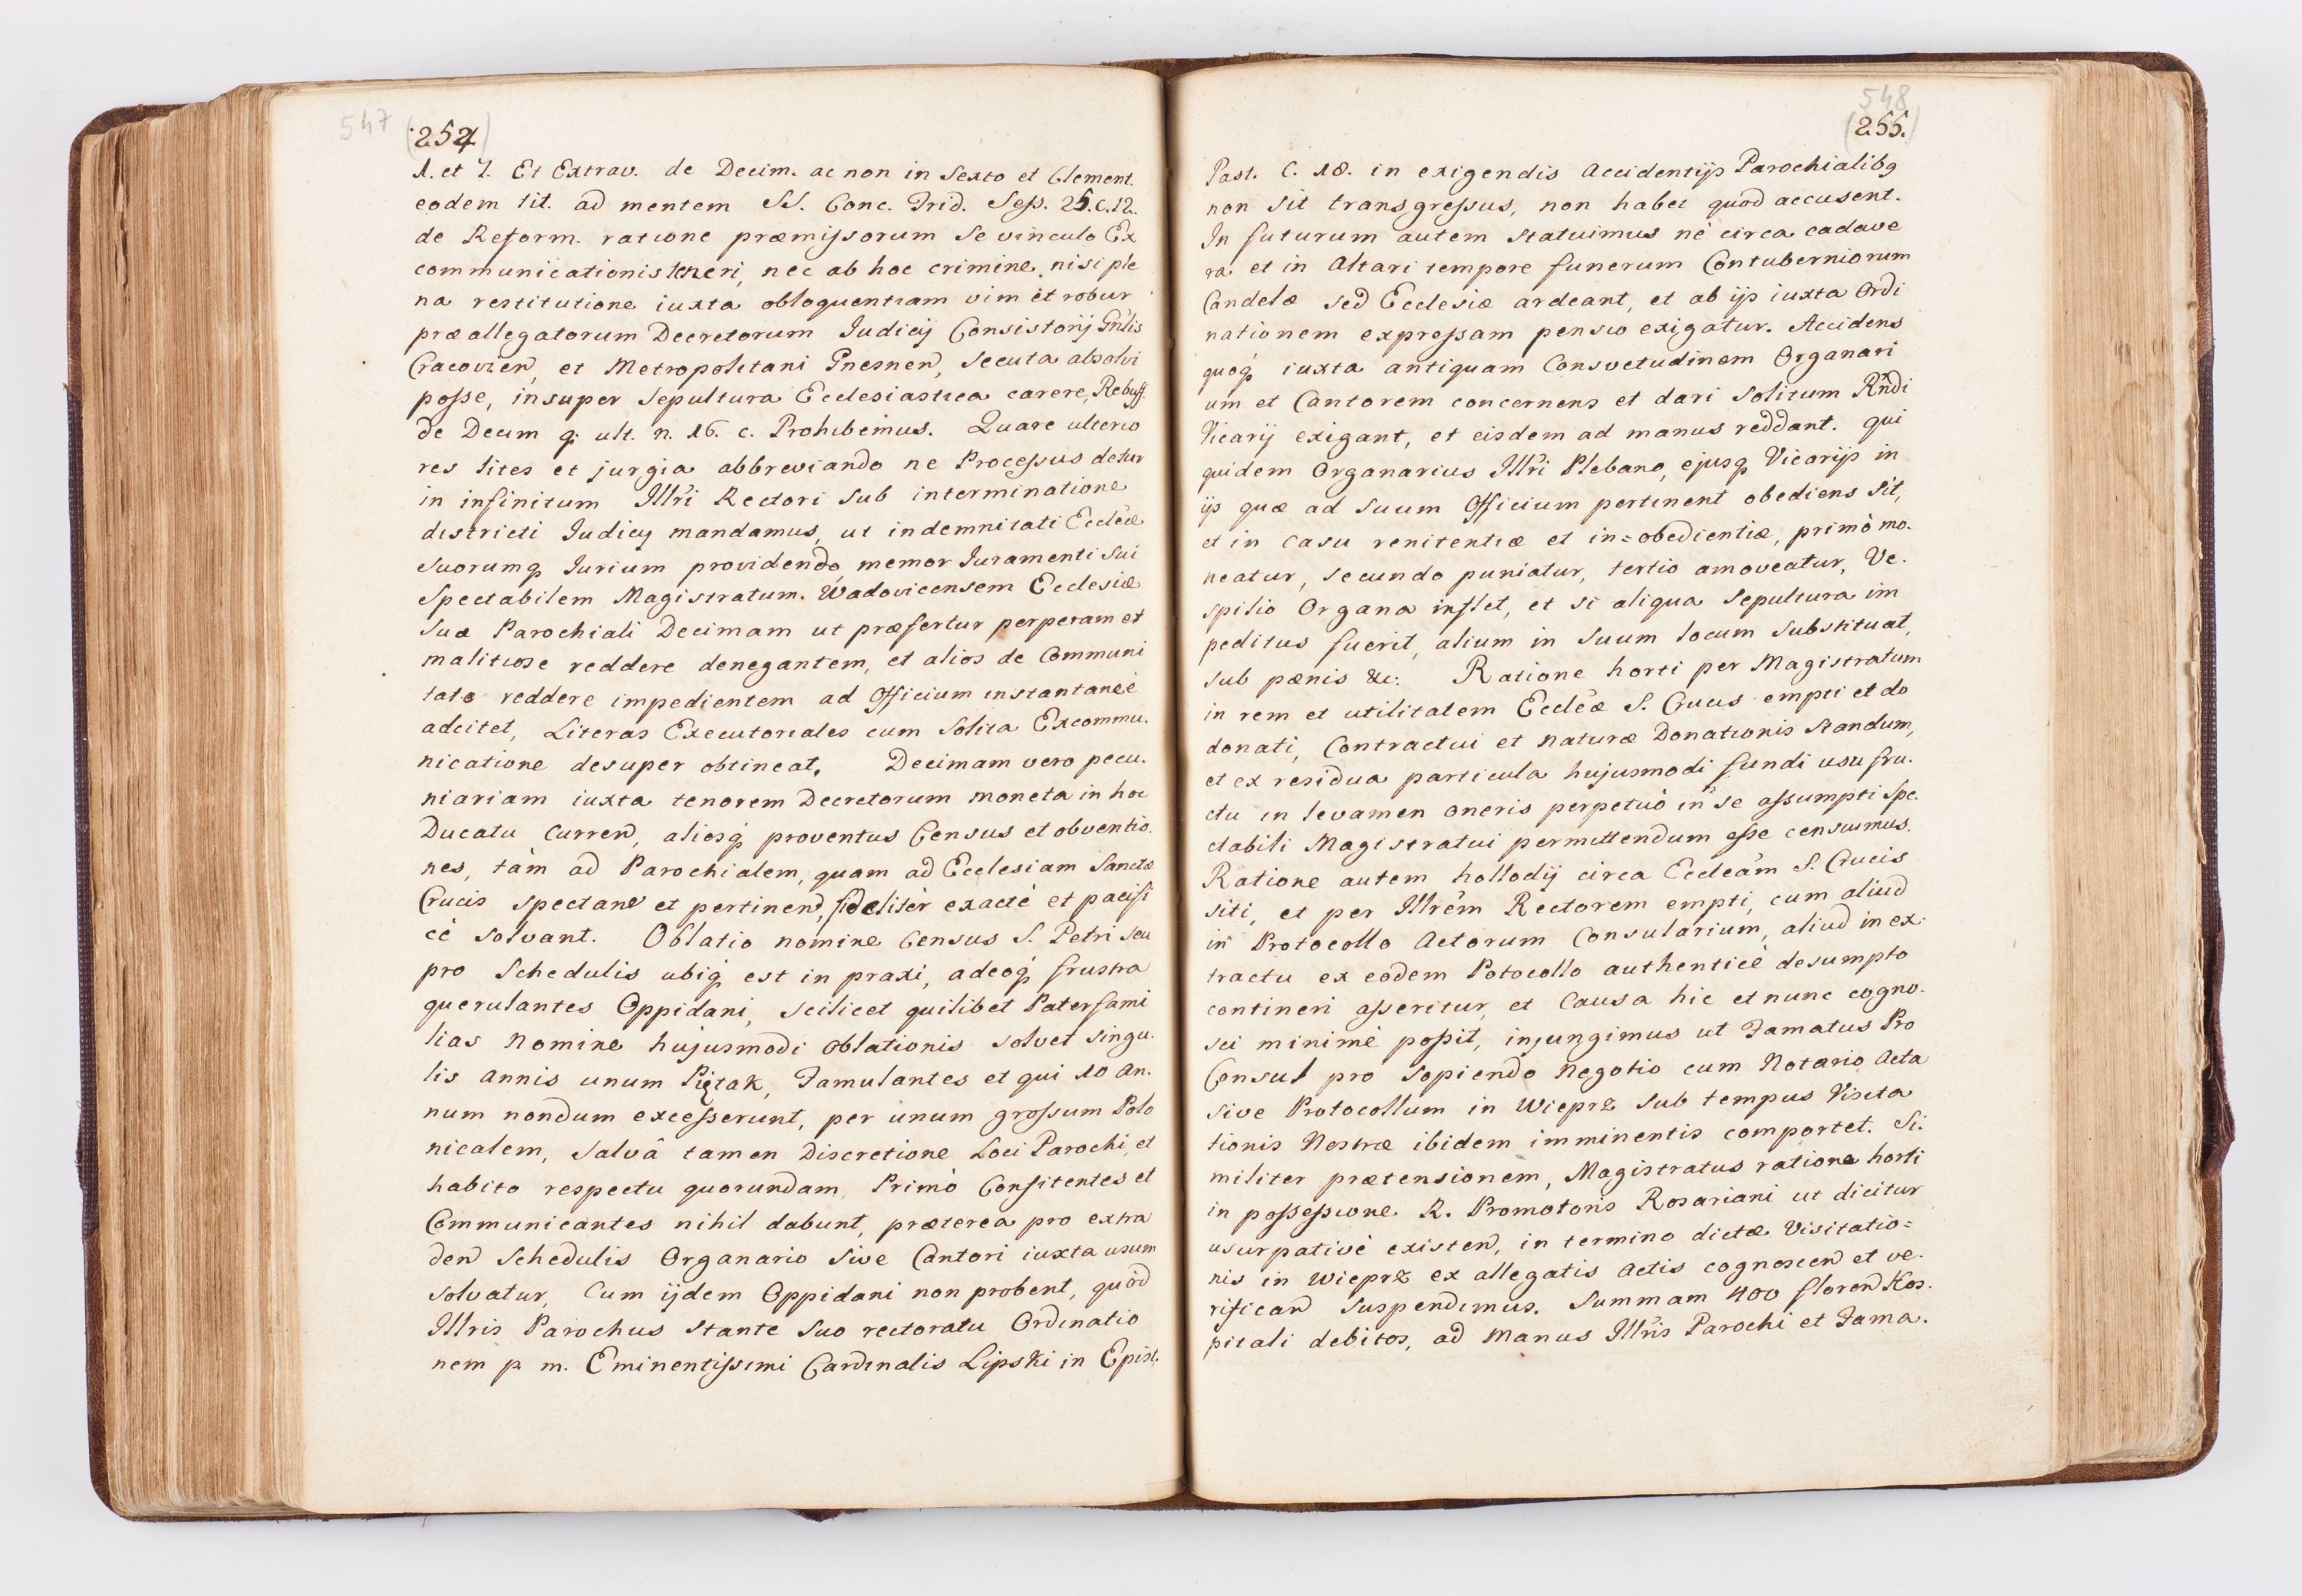 547 (254)
1. et 7. Et Extrav. de Decim. ac non in Sexto et Clement.
eodem tit. ad mentem SS. Conc. Trid. Sess. 25. c. 12.
de Reform. ratione præmissorum se vinculo Ex
communicationis teneri, nec ab hoc crimine nisi ple
na restitutione iuxta obloquentiam vim et robur
præallegatorum Decretorum Iudicij Consistorij Gnlis
Cracovien, et Metropolitani Gnesnen, secuta absolvi
posse, insuper Sepultura Ecclesiastica carere, Rebuff.
de Decim q. ult. n. 16. c. Prohibemus. Quare ulterio
res lites et jurgia abbreviando ne Processus detur
in infinitum Illri Rectori sub interminatione
districti Iudicij mandamus, ut indemnitati Eccleæ
suorumq Iurium providendo, memor Iuramenti sui
Spectabilem Magistratum Wadovicensem Ecclesiæ
suæ Parochiali Decimam ut præfertur perperam et
malitiose reddere denegantem, et alios de Communi
tate reddere impedientem ad Officium instantaneè
adcitet, Literas Executoriales cum solita Excommu.
nicatione desuper obtineat. Decimam vero pecu.
niariam iuxta tenorem Decretorum moneta in hoc
Ducatu Curren, aliosq proventus Census et obventio.
nes, tàm ad Parochialem, quam ad Ecclesiam Sanctæ
Crucis spectan et pertinen, fidelitèr exactè et pacifi
cè solvant. Oblatio nomine Census S. Petri seu
pro Schedulis ubiq est in praxi, adeoq frustra
querulantes Oppidani, scilicet quilibet Paterfami
lias Nomine hujusmodi oblationis solvet singu.
lis annis unum Piętak, Famulantes et qui 10 an.
num nondum excesserunt, per unum grossum Polo
nicalem, salvâ tamen Discretione Loci Parochi, et
habito respectu quorundam. Primò Confitentes et
Communicantes nihil dabunt, præterea pro extra
den Schedulis Organario sive Cantori iuxta usum
solvatur. Cum ijdem Oppidani non probent, quòd
Illris Parochus stante suo rectoratu Ordinatio
nem p. m. Eminentissimi Cardinalis Lipski in Epist.
548
(255.)
Past. C. 18. in exigendis Accidentijs Parochialibq
non sit transgressus, non habet quòd accusent.
In futurum autem statuimus nè circa cadave
ra et in Altari tempore funerum Contuberniorum
Candelæ sed Ecclesiæ ardeant, et ab ijs iuxta Ordi
nationem expressam pensio exigatur. Accidens
quoq iuxta antiquam Consvetudinem Organari
um et Cantorem concernens et dari solitum Rndi
Vicarij exigant, et eisdem ad manus reddant. qui
quidem Organarius Illri Plebano, ejusq Vicarijs in
ijs quæ ad suum Officium pertinent obediens sit,
et in casu renitentiæ et in=obedientiæ, primò mo.
neatur, secundo puniatur, tertio amoveatur, Ve.
spilio Organa inflet, et si aliqua Sepultura im
peditus fuerit, alium in suum locum substituat,
sub pænis &c. Ratione horti per Magistratum
in rem et utilitatem Eccleæ S. Crucis empti et do
donati, Contractui et naturæ Donationis standum,
et ex residua particula hujusmodi fundi usu fru.
ctu in levamen oneris perpetuò in se assumpti Spe.
ctabili Magistratui permittendum esse censuimus.
Ratione autem hollodij circa Eccleam S. Crucis
siti, et per Illrem Rectorem empti, cum aliud
in Protocollo Actorum Consularium, aliud in ex.
tractu ex eodem Potocollo authenticè desumpto
contineri asseritur, et Causa hic et nunc cogno.
sci minimè possit, injungimus ut Famatus Pro
Consul pro sopiendo Negotio cum Notario, Acta
sive Protocollum in Wieprz sub tempus Visita
tionis Nostræ ibidem imminentis comportet. Si.
militer prætensionem, Magistratus ratione horti
in possessione R. Promotoris Rosariani ut dicitur
usurpativè existen, in termino dictæ Visitatio=
nis in Wieprz ex allegatis Actis cognoscen et ve.
rifican suspendimus. Summam 400 floren Hos.
pitali debitos, ad manus Illris Parochi et Fama.